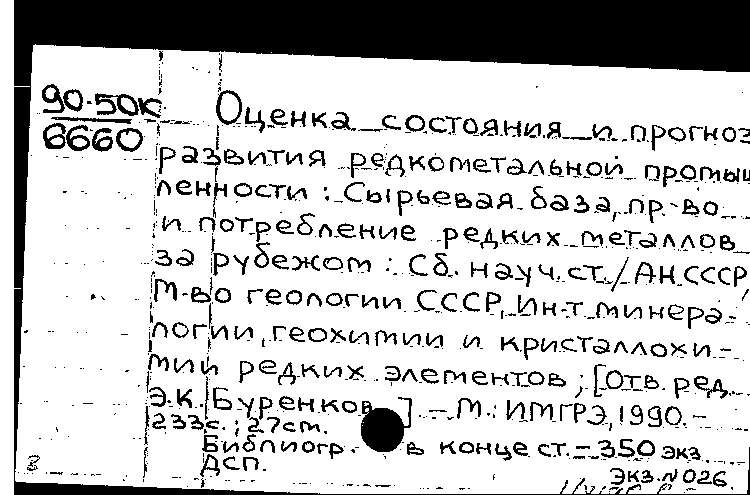 90-50к
6660
Оценка состояния и прогноз
развития редкометальной промыш
ленности : Сырьевая база, пр-во
и потребление редких металлов
за рубежом : Сб. науч. ст. / АН СССР,
М-во геологии СССР, Ин-т минера-
логии, геохимии и кристаллохи-
мии редких элементов ; [Отв. ред.
Э.К. Буренков] – М. : ИМГРЭ, 1990. –
233с. ; 27см.
Библиогр. в конце ст. – 350 экз.
ДСП.
Экз. N 026.